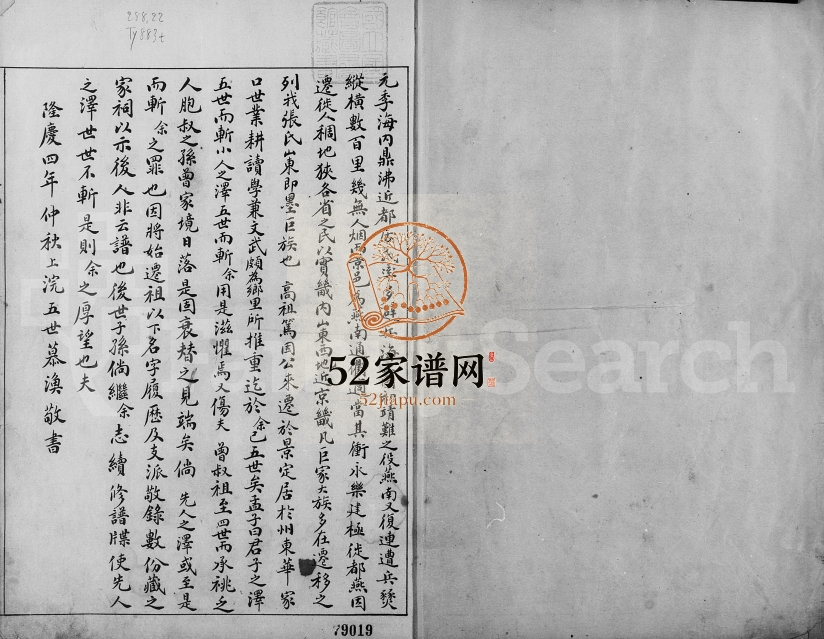 258.22
Ty883t
元季海內鼎沸近都
靖難之役燕南又復連遭兵燹
縱橫數百里幾無人烟而京邑為燕南通
適當其衝永樂建極徙都燕因
遷徙人稠地狹各省之民以實畿內山東西地近京畿凡巨家大族多在遷移之
列我張氏山東即墨巨族也 高祖篤因公來遷於景定居於州東華家
口世業耕讀學兼文武頗為鄉里所推重迄於余已五世矣孟子曰君子之澤
五世而斬小人之澤五世而斬余用是滋懼焉又傷夫 曾叔祖至四世而承祧乏
人胞叔之孫曾家境日落是固衰替之見端矣倘 先人之澤或至是
而斬余之罪也因將始遷祖以下名字履歷及支派敬錄數份藏之
家祠以示後人非云譜也後世子孫倘繼余志續修譜牒使先人
之澤世世不斬是則余之厚望也夫
隆慶四年仲秋上浣五世慕渙敬書
52家谱网
52jiapu.com
Search
79019